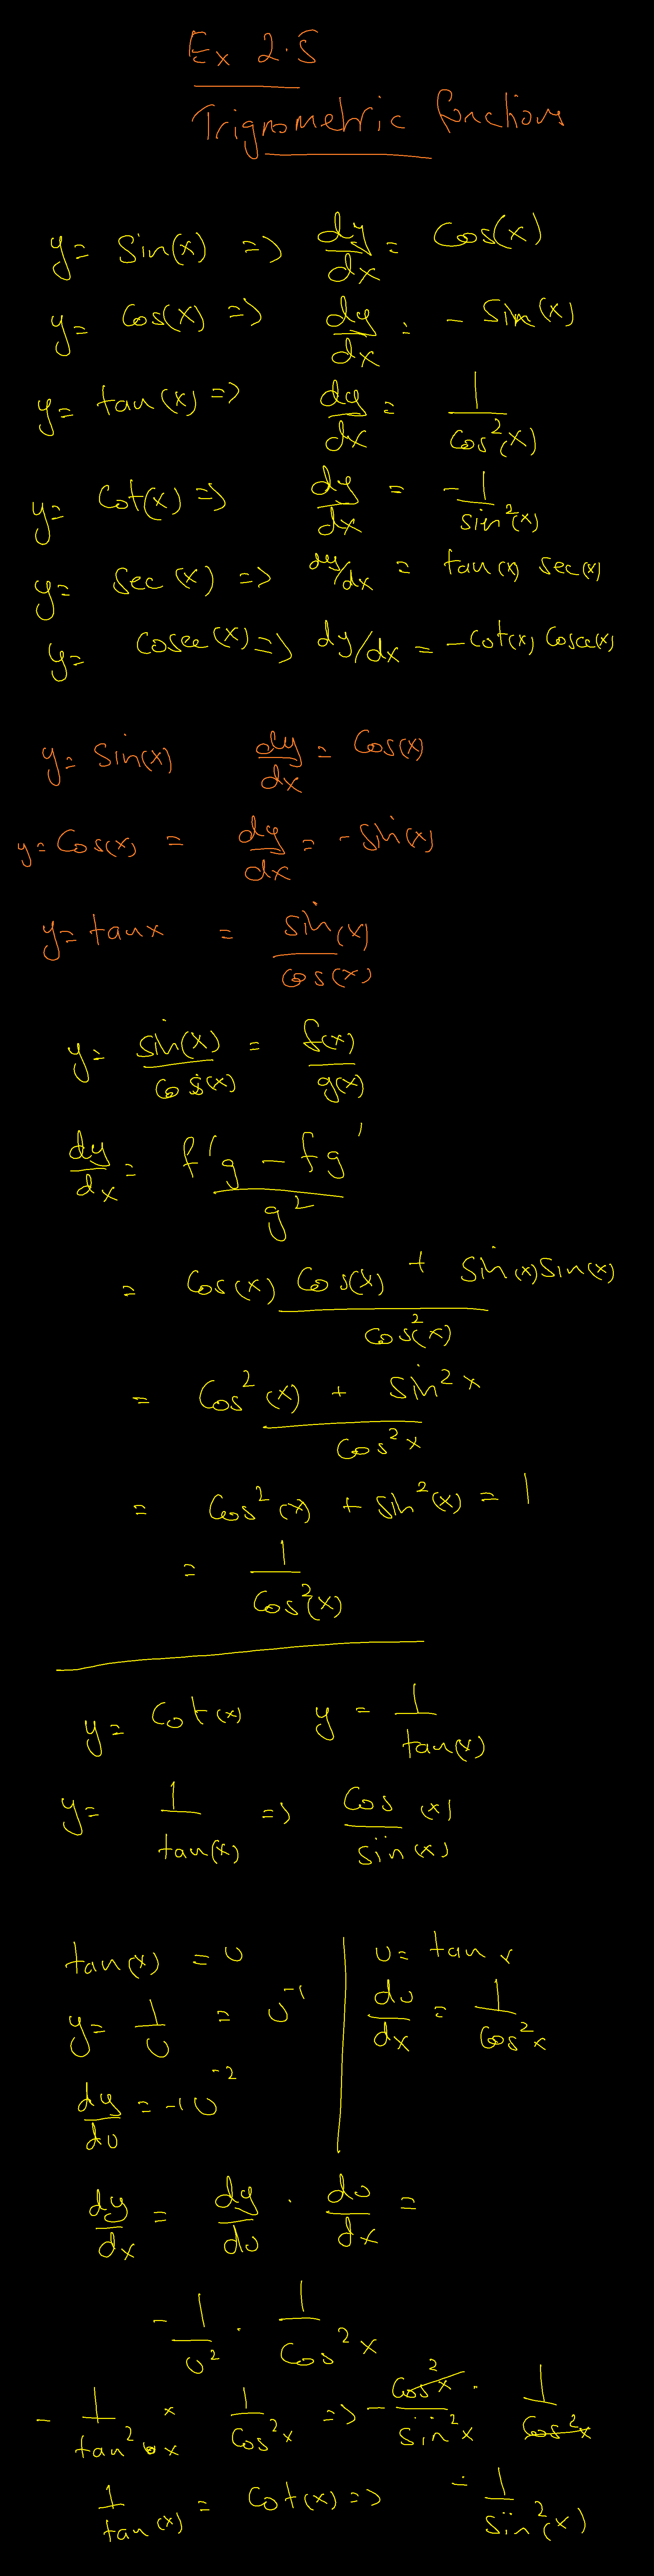 Ex 2.5
Trignometric functions
y = Sin(x) => dy/dx = Cos(x)
y = Cos(x) => dy/dx = - Sin(x)
y = tan(x) => dy/dx = 1/Cos²(x)
y = Cot(x) => dy/dx = -1/sin²(x)
y = Sec(x) => dy/dx = tan(x) sec(x)
y = Cosec(x) => dy/dx = -Cot(x) Cosec(x)
y = Sin(x) dy/dx = Cos(x)
y = Cos(x) = dy/dx = - Sin(x)
y = tanx = sin(x)/cos(x)
y = sin(x)/cos(x) = f(x)/g(x)
dy/dx = f'g - fg'/g²
= Cos(x) Cos(x) + Sin(x)Sin(x)/Cos²(x)
= Cos²(x) + Sin²x/Cos²x
= Cos²(x) + Sin²(x) = 1
= 1/Cos²(x)
y = Cot(x) y = 1/tan(x)
y = 1/tan(x) => Cos(x)/sin(x)
tan(x) = U U = tan x
y = 1/U = U⁻¹ dU/dx = 1/Cos²x
dy/dU = -1U⁻²
dy/dx = dy/dU · dU/dx =
- 1/U² · 1/Cos²x
- 1/tan²x × 1/Cos²x => - Cos²x/sin²x · 1/Cos²x
1/tan(x) = Cot(x) => - 1/Sin²(x)